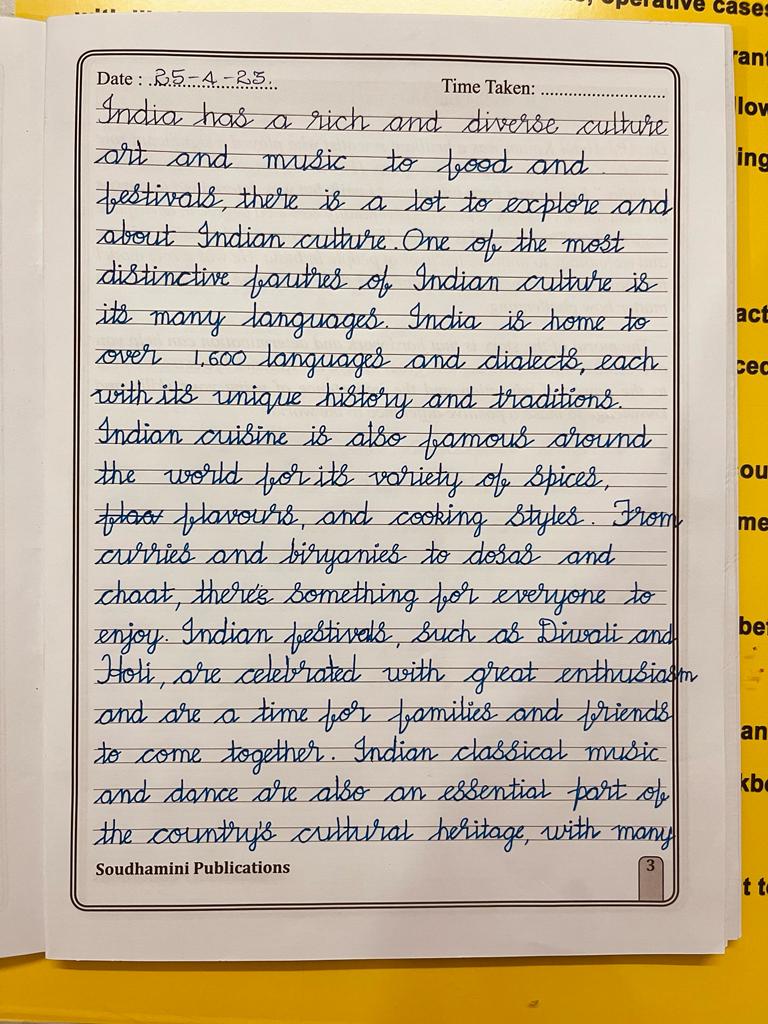 with
operative cases
Date : 25-4-23.
Time Taken:
India has a rich and diverse culture
art and music to food and
festivals, there is a lot to explore and
about Indian culture. One of the most
distinctive fautres of Indian culture is
its many languages. India is home to
over 1,600 languages and dialects, each
with its unique history and traditions.
Indian cuisine is also famous around
the world for its variety of spices,
flavours, and cooking styles. From
curries and biryanies to dosas and
chaat, there's something for everyone to
enjoy. Indian festivals, such as Diwali and
Holi, are celebrated with great enthusiasm
and are a time for families and friends
to come together. Indian classical music
and dance are also an essential part of
the country's cultural heritage, with many
Soudhamini Publications
3